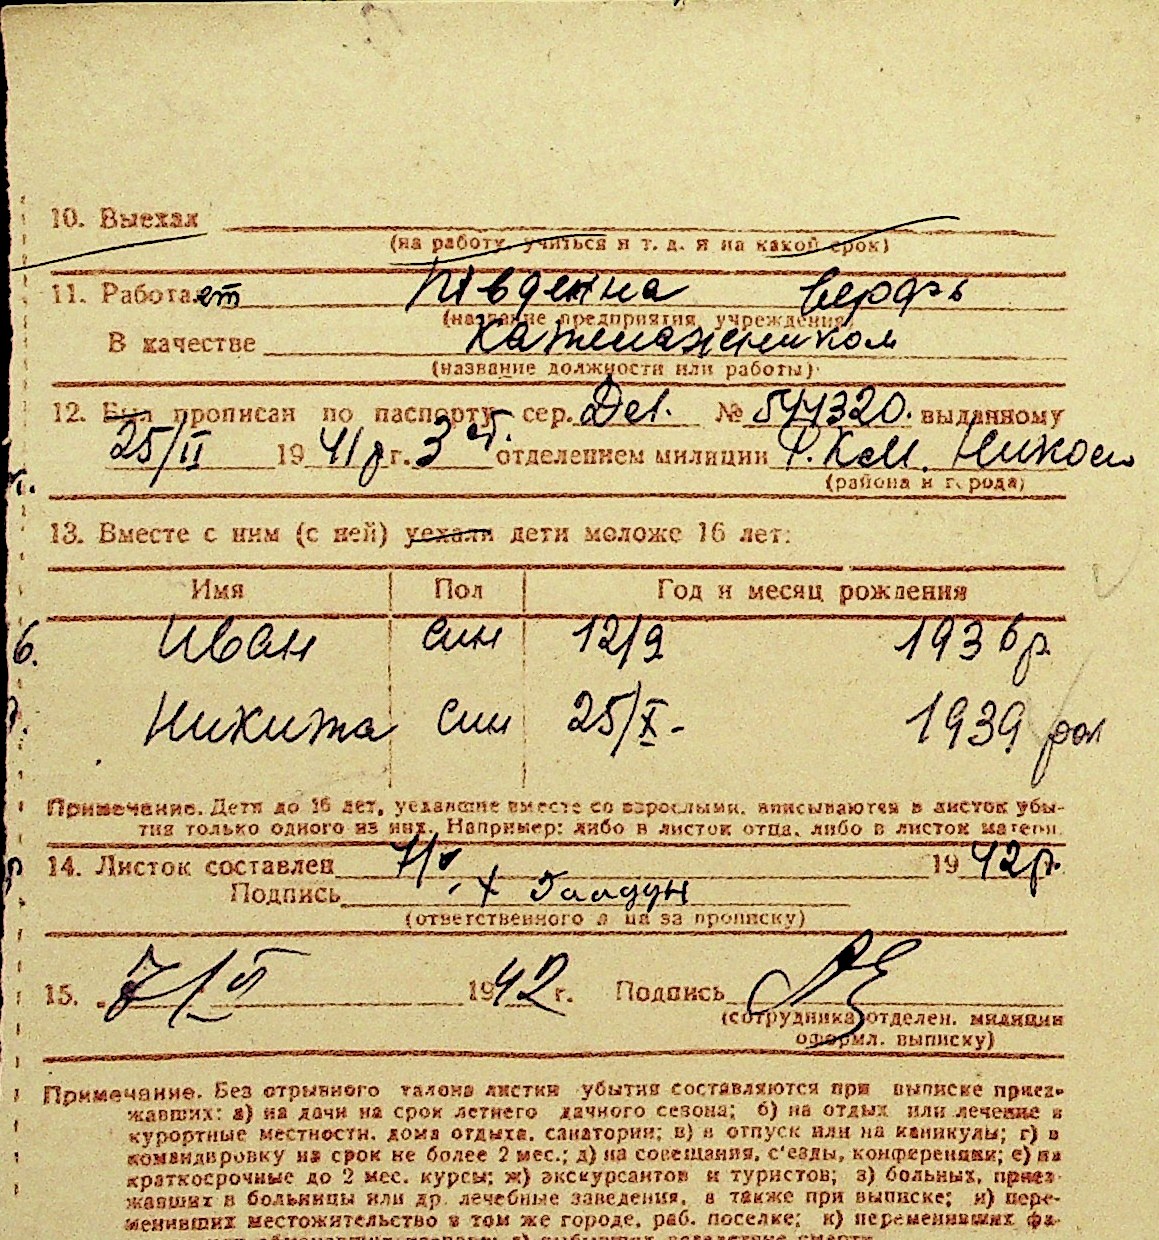 10. Выехал
(на работу, учиться и т. д. и на какой срок)
11. Работает Південна верфь
(название предприятия, учреждения)
В качестве
(название должности или работы)
12. Был прописан по паспорту сер. № 544320. выданному
25/II 1941 р г. 3 отделением милиции Р.К.М. Никол
(района и города)
13. Вместе с ним (с ней) уехали дети моложе 16 лет:
Имя Пол Год и месяц рождения
6. Иван син 12/9 1936 р.
Никита син 25/X- 1939 рол
Примечание. Дети до 16 лет, уехавшие вместе со взрослыми, вписываются в листок убы-
тия только одного из них. Например: либо в листок отца, либо в листок матери.
14. Листок составлен 1942р.
Подпись
(ответственного лица за прописку)
15. 7/V 1942 г. Подпись
(сотрудника отделен. милиции
оформл. выписку)
Примечание. Без отрывного талона листки убытия составляются при выписке приез-
жавших: а) на дачи на срок летнего дачного сезона; б) на отдых или лечение в
курортные местности, дома отдыха, санатории; в) в отпуск или на каникулы; г) в
командировку на срок не более 2 мес.; д) на совещания, с'езды, конференции; е) на
краткосрочные до 2 мес. курсы; ж) экскурсантов и туристов; з) больных, приез-
жавших в больницы или др. лечебные заведения, а также при выписке; и) пере-
менивших местожительство в том же городе, раб. поселке; к) переменивших фа-